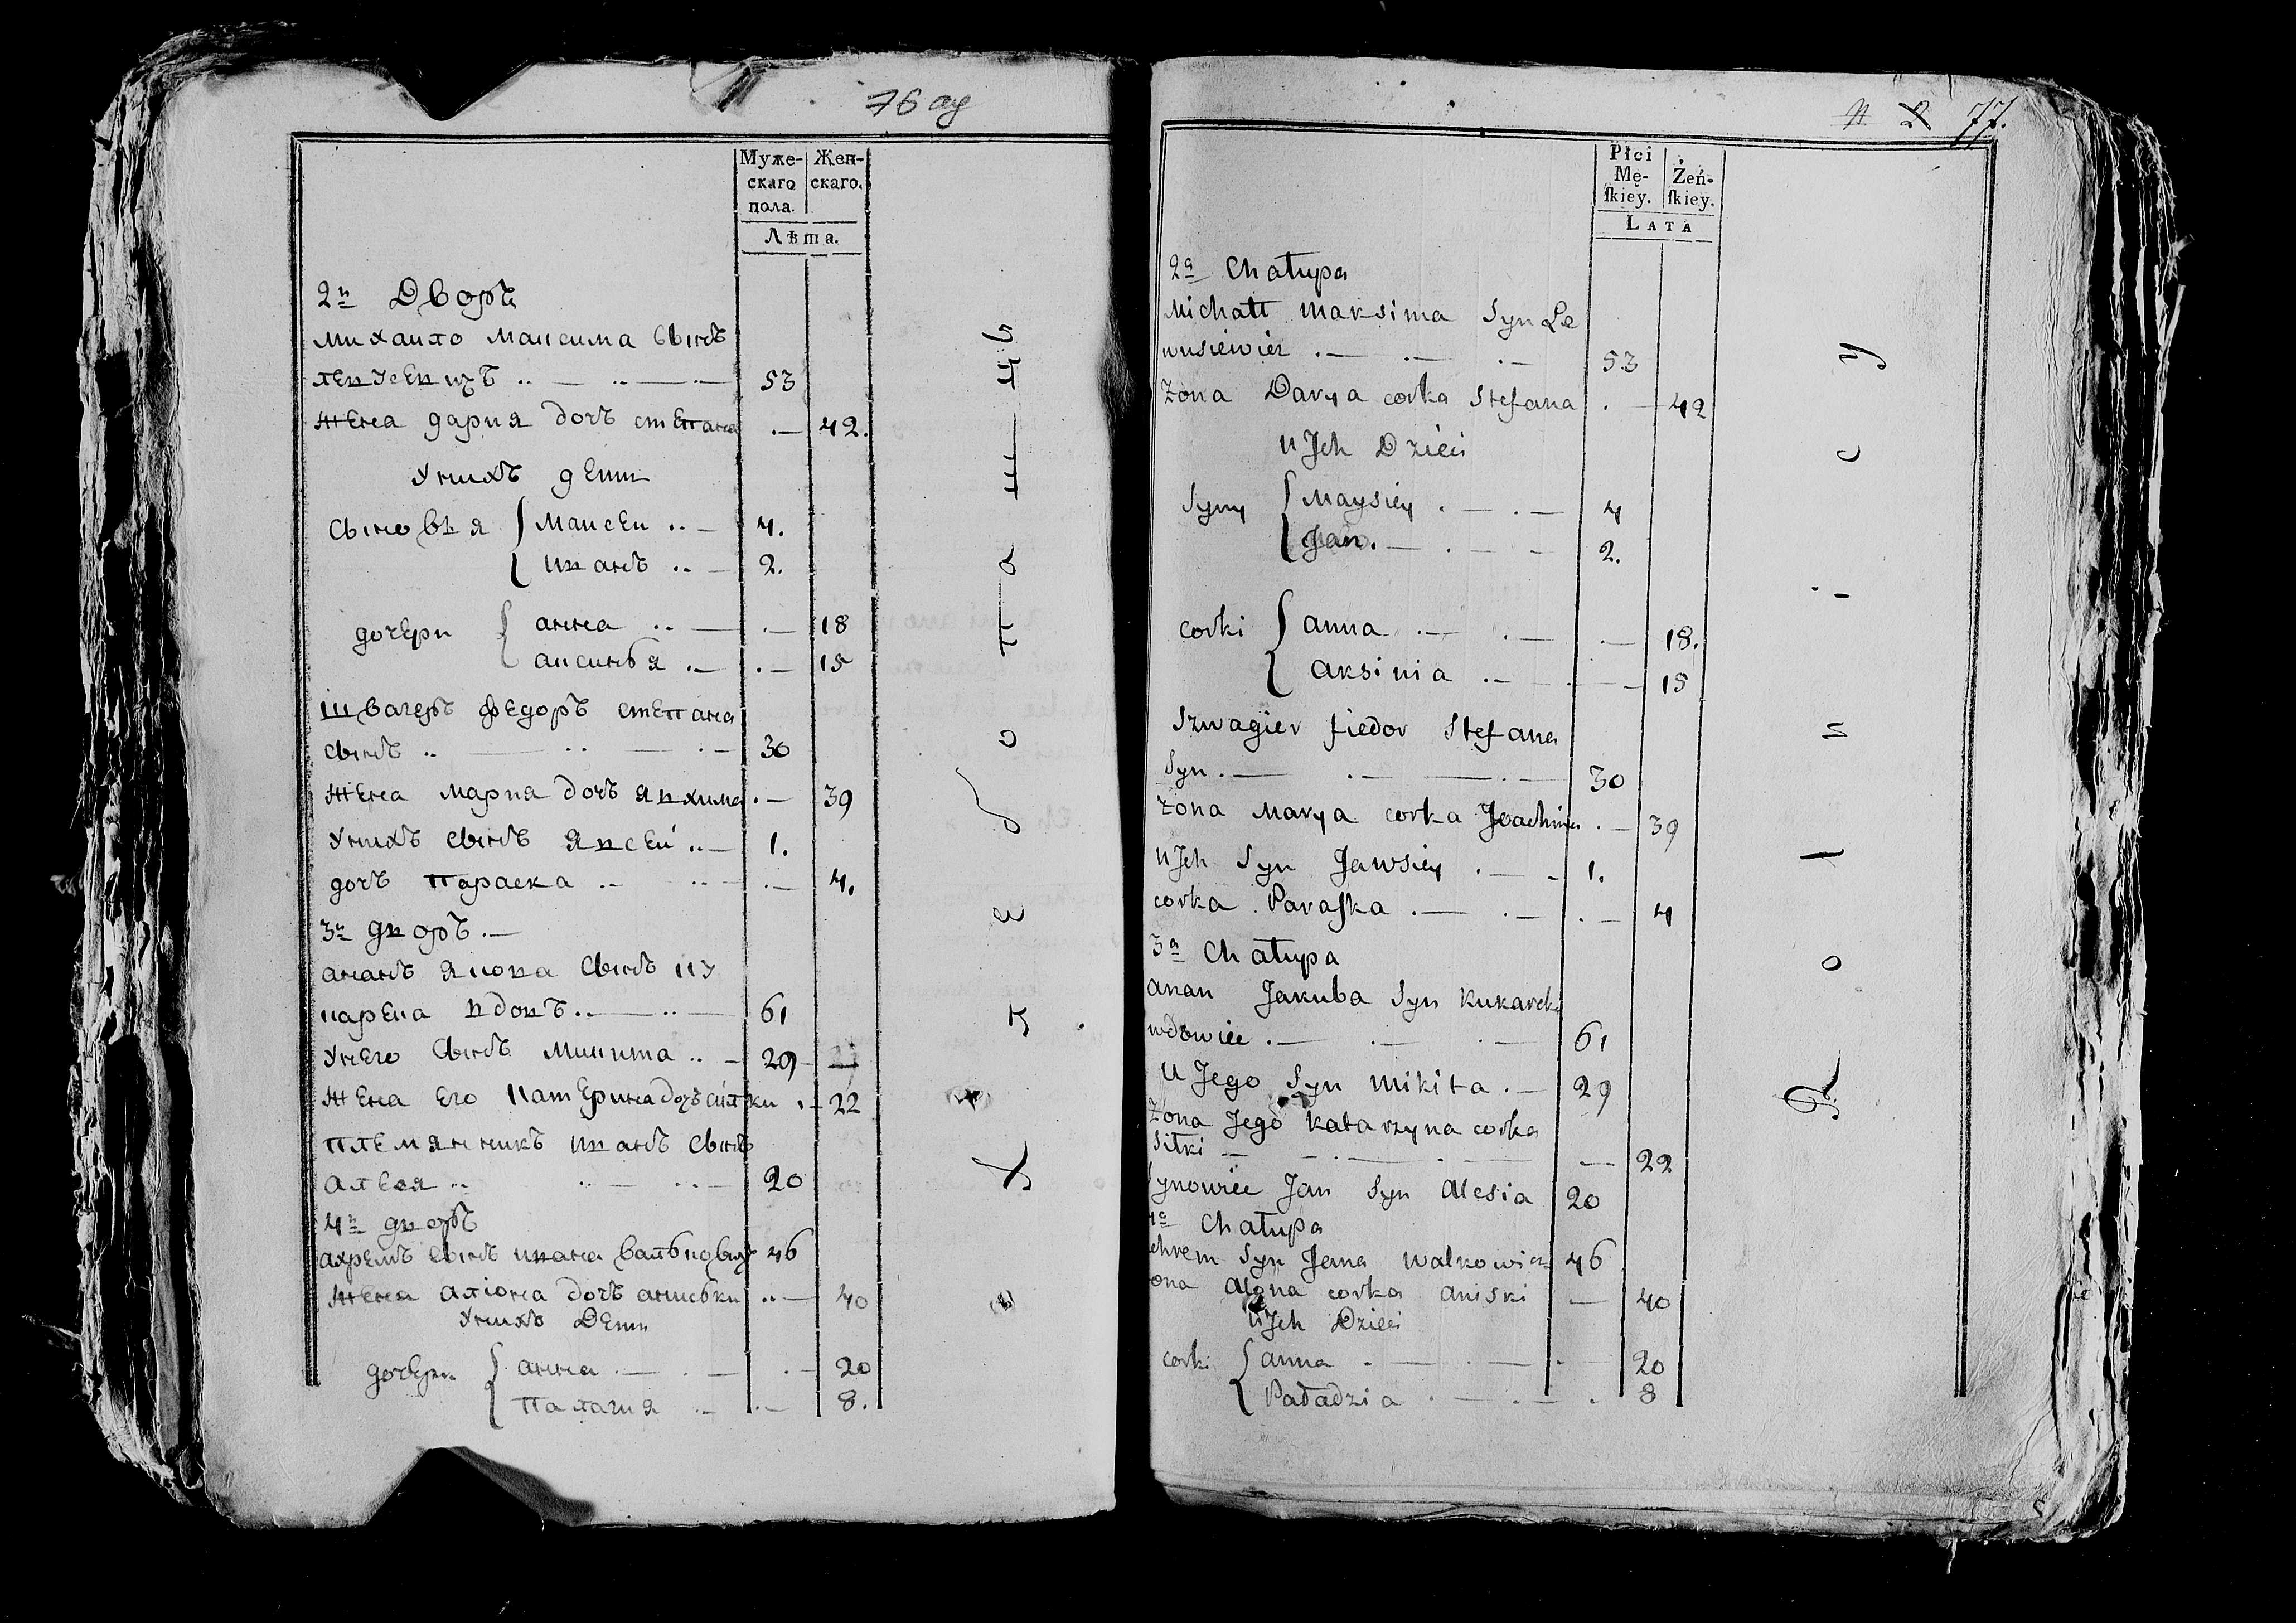 76 об
Муже-
скаго
пола.
Жен-
скаго.
Лѣта.
2й Дворъ
Михайло Максима Сынъ
левусевичъ .. — .. — 53
Жена дария дочь степана . — 42.
Унихъ дети
Сыновья { Майсей .. — 4.
{ иванъ .. — 2.
дочери { анна .. — . — 18
{ аксинья . — . — 15
шВагеръ федоръ степана
Сынъ .. — .. — . — 30
Жена Мария дочь явхима . — 39
Унихъ сынъ явсей .. — 1.
дочъ Параска .. — .. — . — 4.
3й дворъ . —
ананъ якова Сынъ ку
карека вдовъ .. — .. — 61
Унего Сынъ Микита .. — 29
Жена Его катерина дочъ силки . — 22
племянникъ иванъ Сынъ
алеся .. — .. — 20
4й дворъ
ахремъ Сынъ ивана Валькович 46
Жена алюна дочъ аниськи .. — 40
Унихъ Дети
дочери { анна . — . — . — 20
{ палагия .. — . — 8.
77.
Płci
Mę-
ſkiey.
Żeń-
ſkiey.
LATA
2a Chałupa
Michałł Maksima Syn Le
wusiewicz . — . — . — 53
żona Darya corka Stefana . — 42
u Jch Dzieci
Syny { Maysiey . — . — 4
{ Jan . — . — 2.
corki { anna . — . — . — 18.
{ aksinia . — . — 15
Szwagier fiedor Stefana
Syn . — . — . — 30
żona Marya corka Joachima . — 39
u Jch Syn Jawsiey . — 1.
corka Paraſka . — . — . — 4
3a Chałupa
anan Jakuba Syn Kukareka
wdowiec . — . — . — 61
u Jego Syn mikita . — 29
żona Jego Katarzyna corka
Siłki — . — . — 22
Synowiec Jan Syn Alesia 20
4a Chałupa
chrem Syn Jana Walkowicz 46
ona Alona corka Aniski — 40
u Jch Dzieci
corki { anna . — . — . — 20
{ Paładzia . — . — . 8